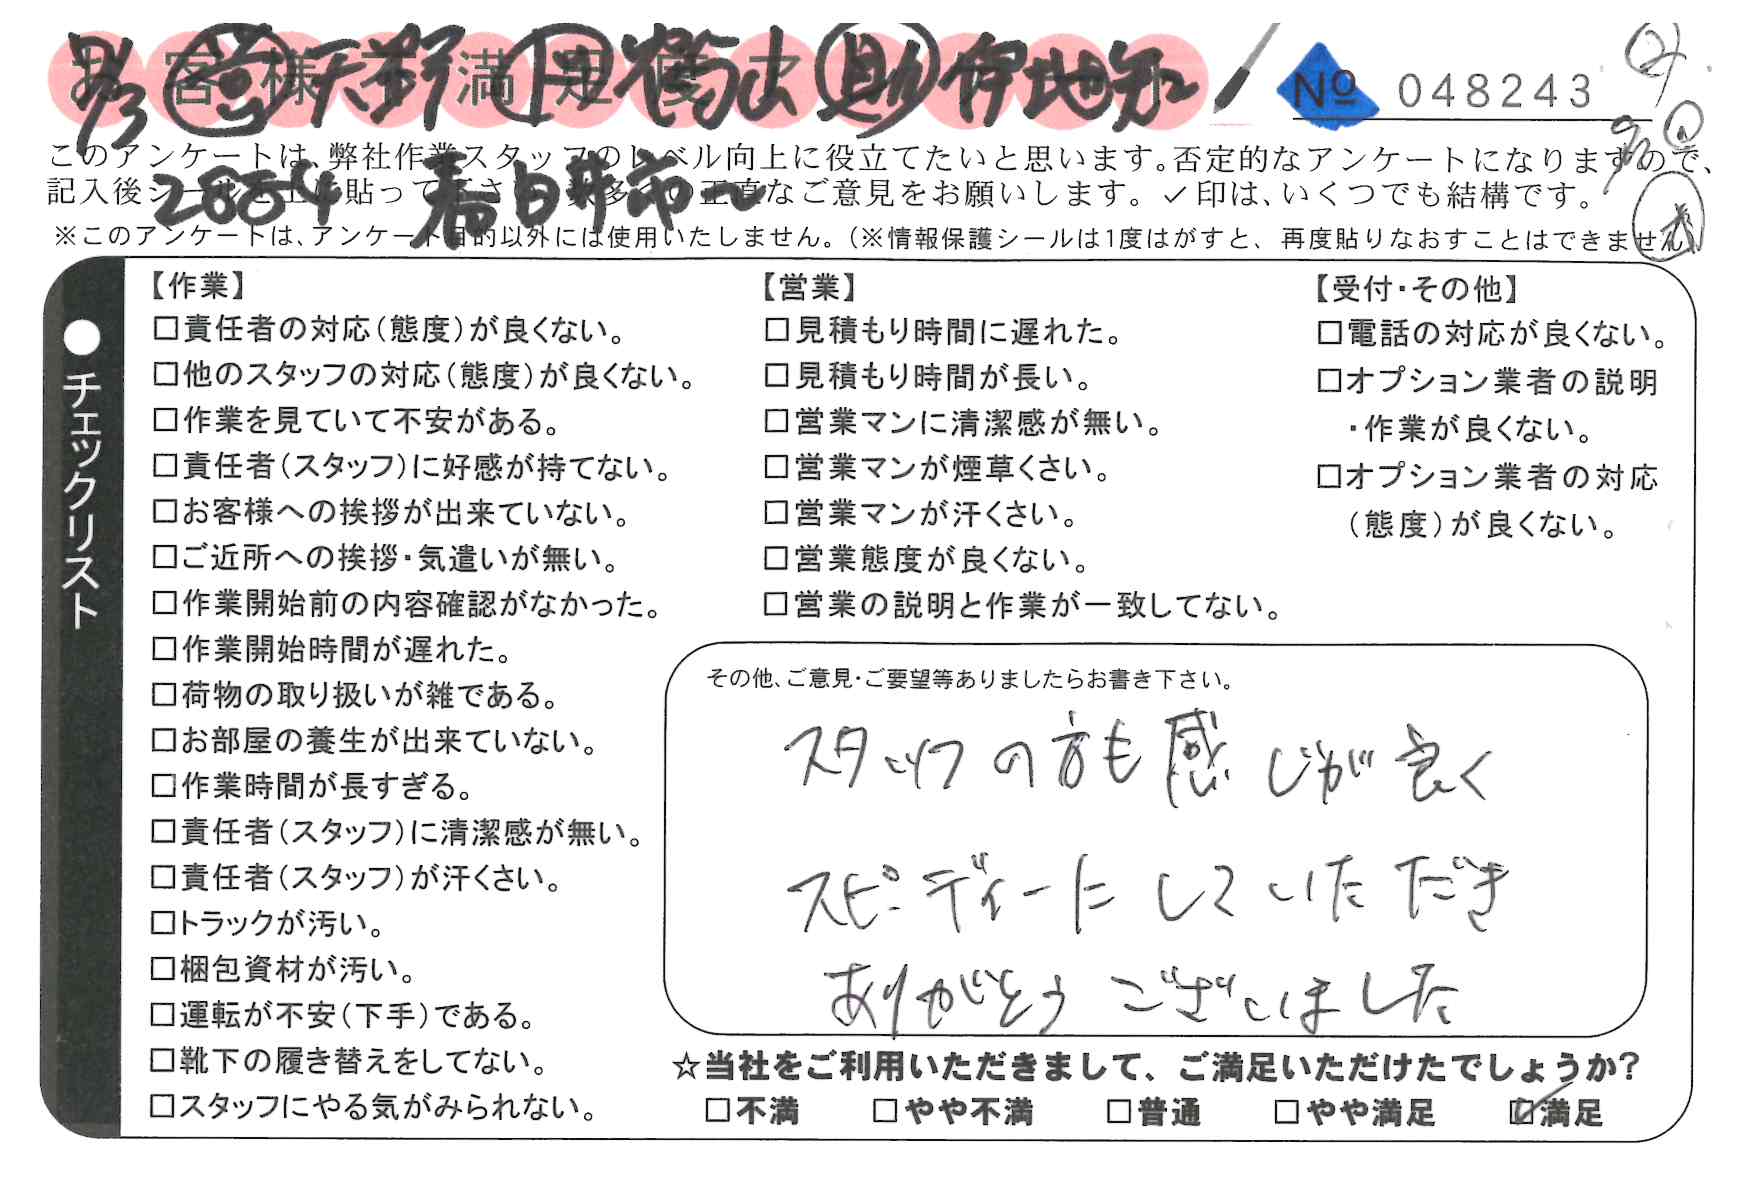 お客様不満足度アンケート
9/3 営 天野 作 濱田 助 伊地知
No 048243
このアンケートは、弊社作業スタッフのレベル向上に役立てたいと思います。否定的なアンケートになりますので、
記入後シールを上に貼って下さい。数多くの正直なご意見をお願いします。✓印は、いくつでも結構です。
春日井市
※このアンケートは、アンケート目的以外には使用いたしません。(※情報保護シールは1度はがすと、再度貼りなおすことはできません)
●チェックリスト
【作業】
□責任者の対応(態度)が良くない。
□他のスタッフの対応(態度)が良くない。
□作業を見ていて不安がある。
□責任者(スタッフ)に好感が持てない。
□お客様への挨拶が出来ていない。
□ご近所への挨拶・気遣いが無い。
□作業開始前の内容確認がなかった。
□作業開始時間が遅れた。
□荷物の取り扱いが雑である。
□お部屋の養生が出来ていない。
□作業時間が長すぎる。
□責任者(スタッフ)に清潔感が無い。
□責任者(スタッフ)が汗くさい。
□トラックが汚い。
□梱包資材が汚い。
□運転が不安(下手)である。
□靴下の履き替えをしてない。
□スタッフにやる気がみられない。
【営業】
□見積もり時間に遅れた。
□見積もり時間が長い。
□営業マンに清潔感が無い。
□営業マンが煙草くさい。
□営業マンが汗くさい。
□営業態度が良くない。
□営業の説明と作業が一致してない。
【受付・その他】
□電話の対応が良くない。
□オプション業者の説明
・作業が良くない。
□オプション業者の対応
(態度)が良くない。
その他、ご意見・ご要望等ありましたらお書き下さい。
スタッフの方も感じが良く
スピーディーにしていただき
ありがとうございました
☆当社をご利用いただきまして、ご満足いただけたでしょうか?
□不満 □やや不満 □普通 □やや満足 ☑満足